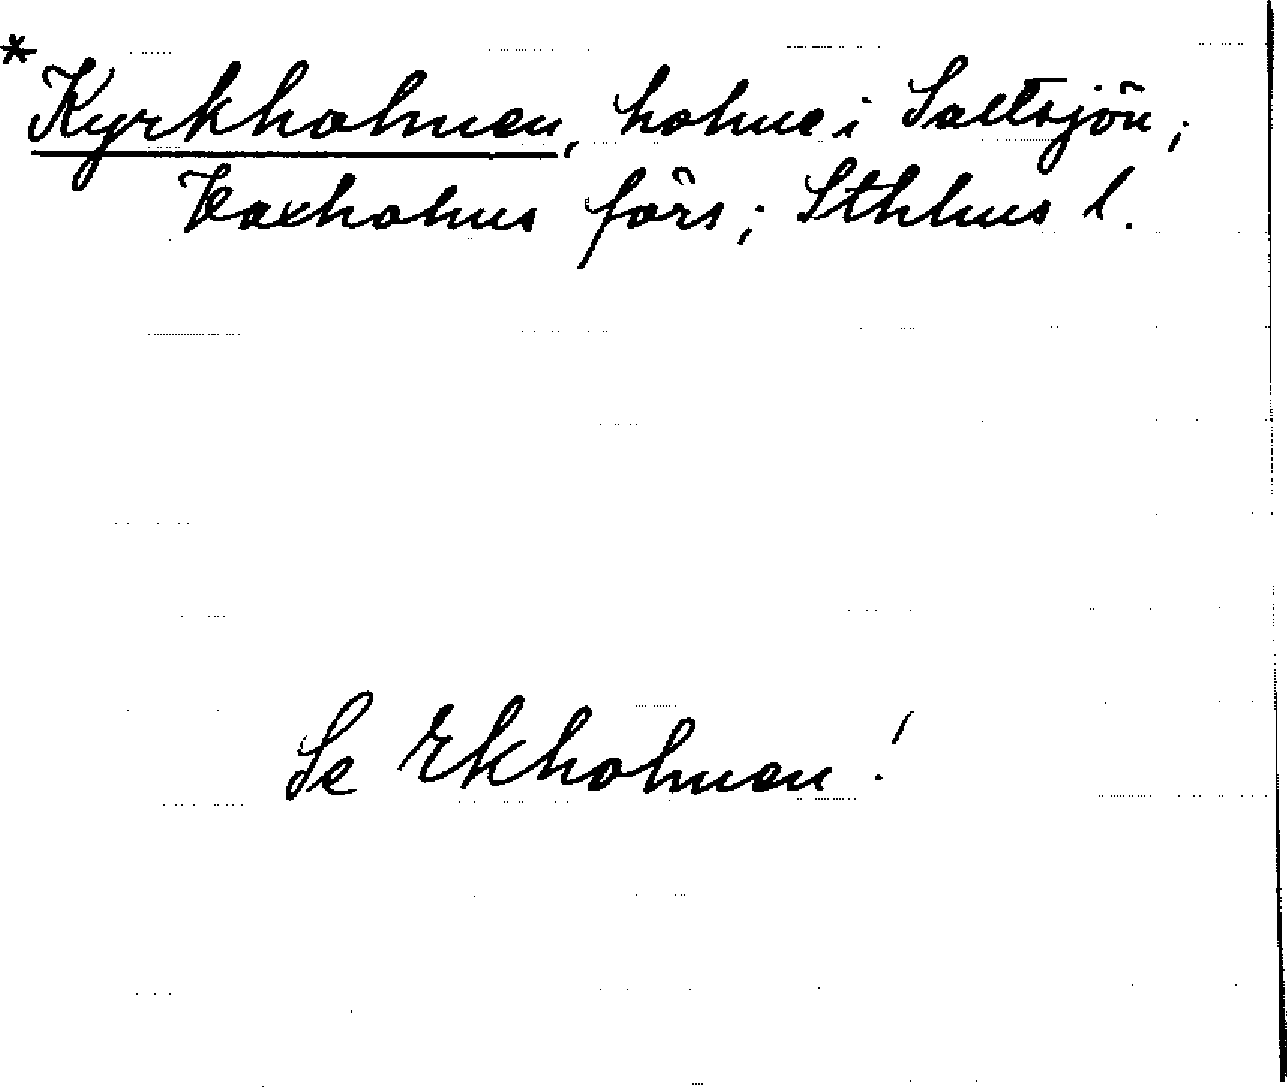 *Kyrkholmen, holme i Saltsjön;
Vaxholms förs; Sthlms l.
Se Ekholmen!